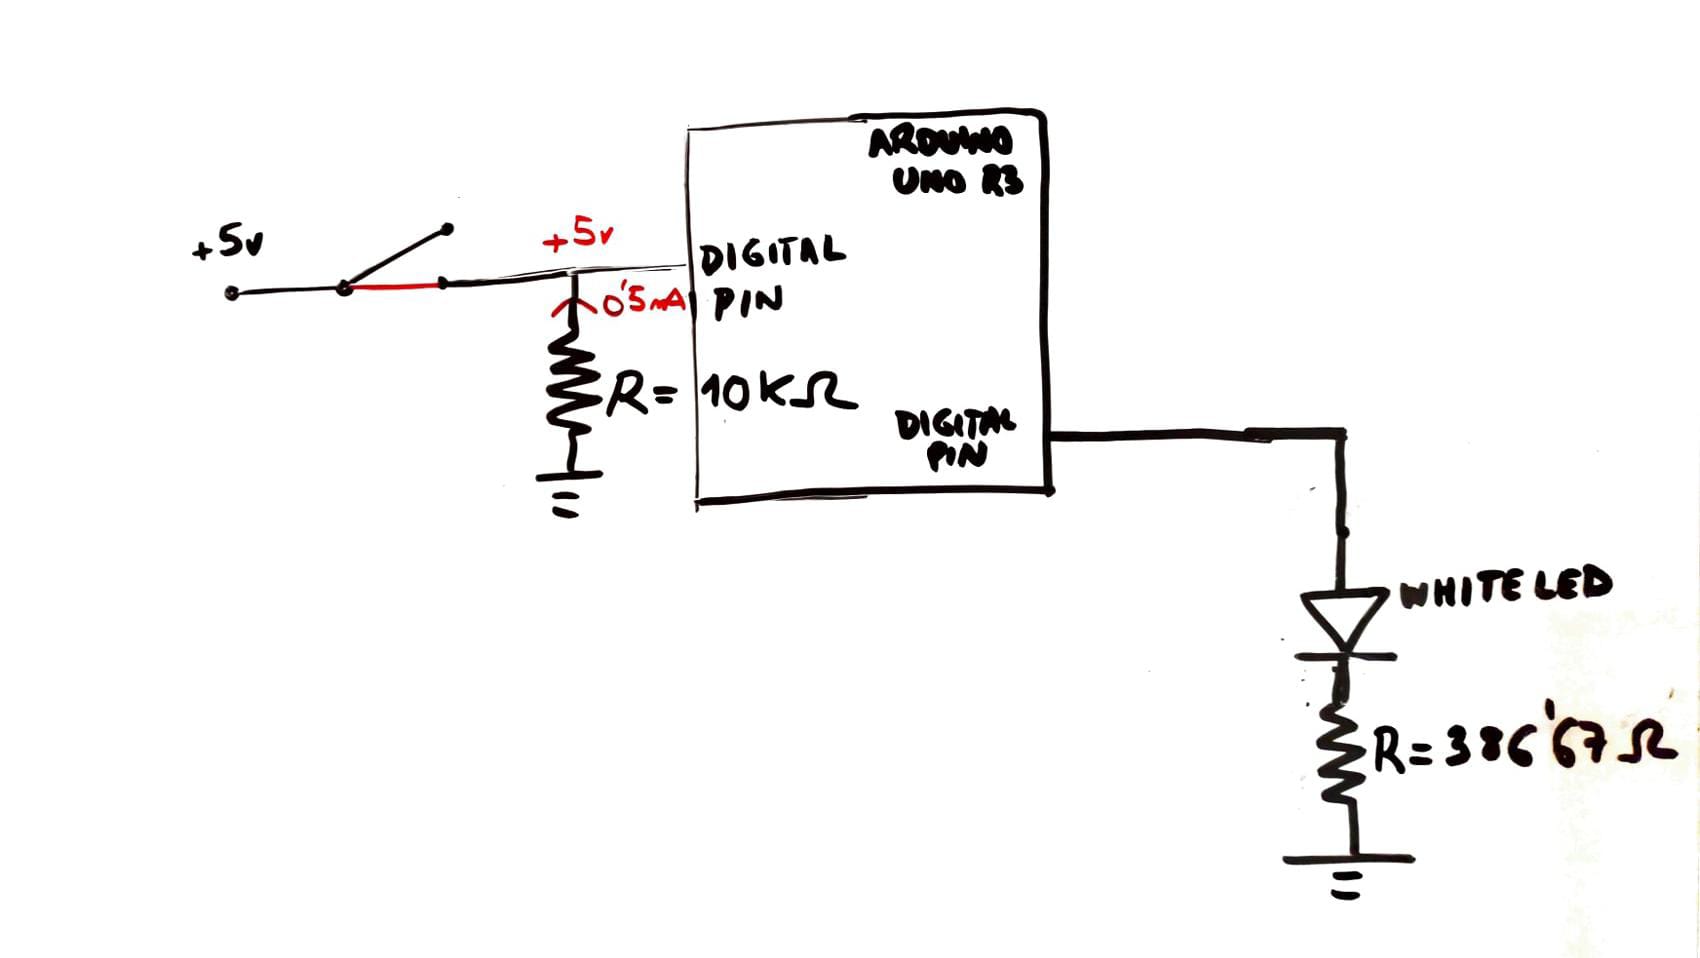 ARDUINO
UNO R3
+5v
+5v
DIGITAL
PIN
0'5mA
R= 10KΩ
DIGITAL
PIN
WHITE LED
R=386'67Ω